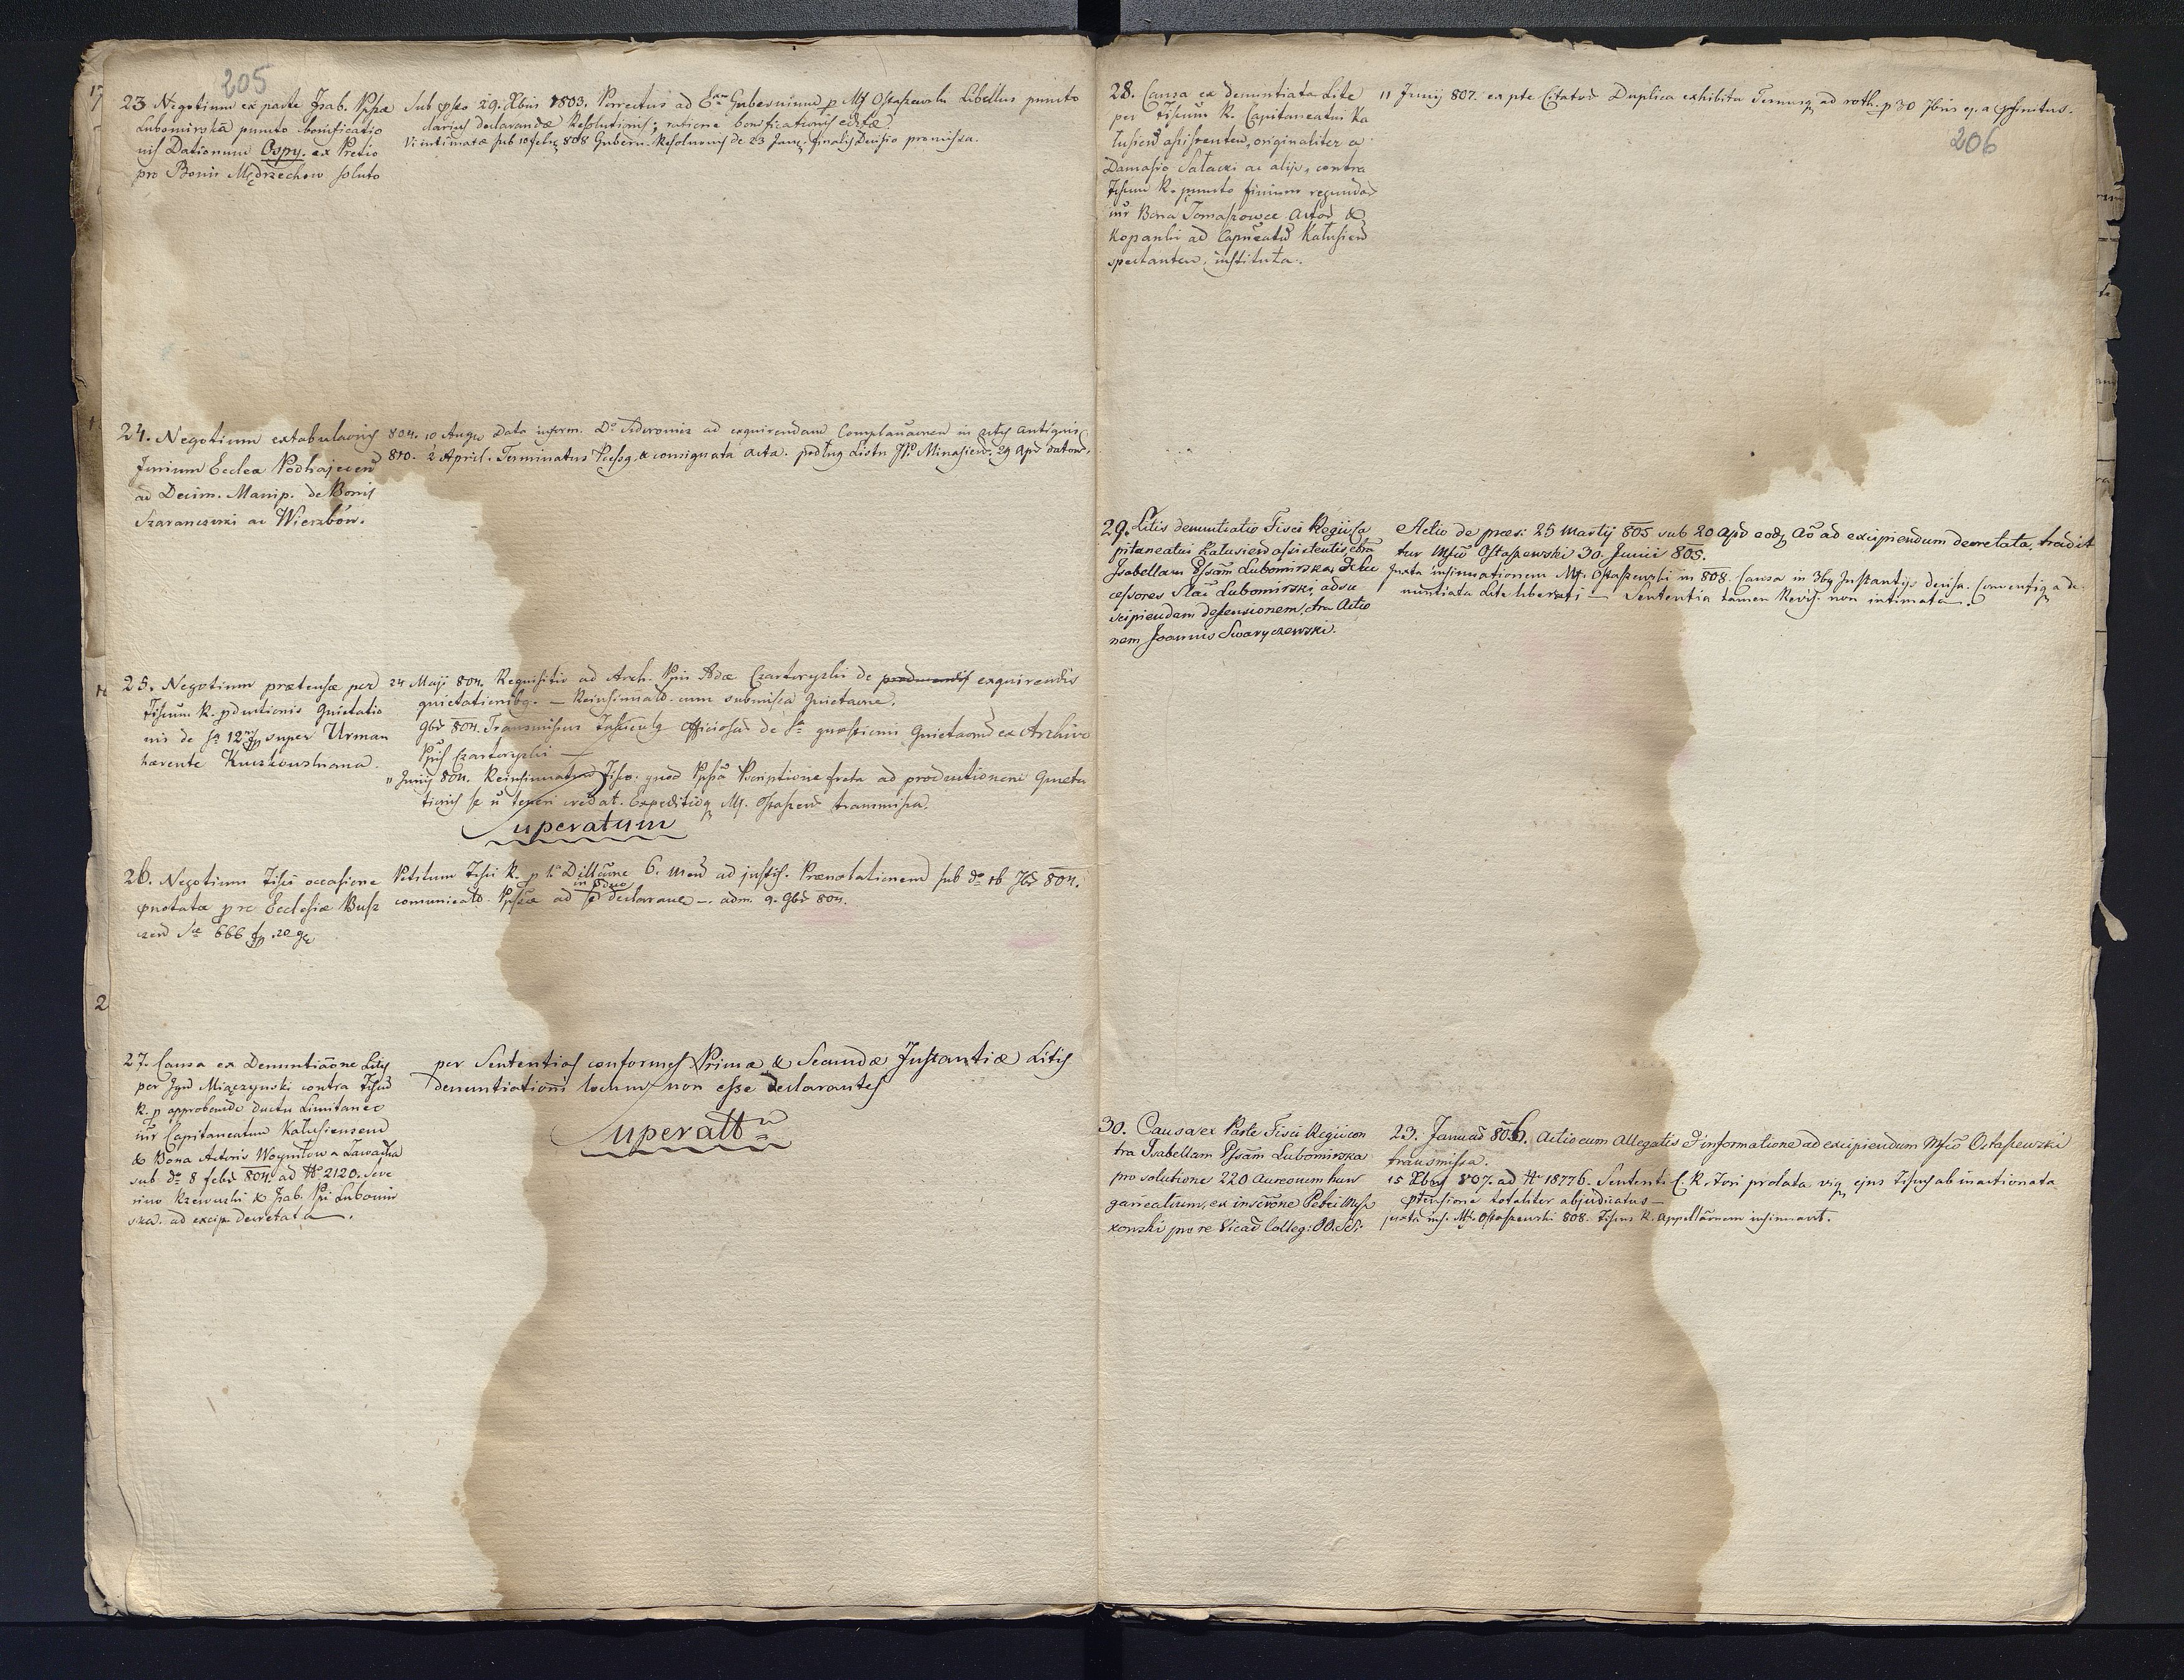 205
23 Negotium ex parte Isab. Ppssæ
Lubomirska puncto bonificatio
nis Dationum Ospy. ex Pretio
pro Bonis Mędrzechow soluto
Sub pso 29. Xbris 1803. Porrectus ad Gubernium p Mf Ostaszewski Libellus puncto
clarius declarandæ Resolutionis; ratione bonificationis
Vi intimatæ sub 10 feb 808 Gubern. Resolutionis de 23 finalis Decisio promissa.
24. Negotium extabulaonis
Jurium Eccleæ Podhajecen
ad Decim. Manip. de Bonis
Szaranczuki ac Wierzbów.
804. 10 Augu Data inform. Do ad exquirendam in actis antiquis
810. 2 April. Terminatus & consignata acta. podług Listu 29 Apr
25. Negotium prætensæ per
Fiscum R. pductionis Quietatio
nis de super Urman
hærente
24 Maji 804. Requisitio ad Arch. Ppis Adæ Czartoryski de exquirendis
quietationibq. — cum submissa Quietaone.
9br 804. Transmissus Fasciculq officiosus de quæstionis Quietaone ex Archivo
Ppis Czartoryski —
" Junij 804. Fisco. quod Ppssa Pscriptione freta ad productionem Quieta
tionis se ñ teneri credat. Expeditioq Mf. Ostaszew transmissa.
Superatum
26. Negotium Fisci occasione
pnotatæ pro Ecclesiæ Busz
666
Petitum Fisci R. p Dillaone 6. Men ad justif. Prænotationem sub do 16 7br 804.
comunicato. Ppssæ ad se declarane —. adm. 9. 9br 804.
27. Causa ex Denuntiaone Litis
per Ign Miączynski contra Fiscu
R. p approbando ductu Limitaneo
int Capitaneatum Kalusiensem
& Bona Actoris Woyniłow a Zawadka
sub do 8 febr 804. ad No 2120. Seve
rino Rzewuski & Isab. Ppi Lubomir
ska. ad excip. decretata.
per Sententias conformes Primæ & Secundæ Instantiæ Litis
denuntiationi locum non esse declarantes
Superatt
2
28. Causa ex denuntiata Lite
per Fiscum R. Capitaneatui Ka
lusien assistentem, originaliter a
Damasio Sałacki ac alijs contra
Fiscum R. puncto finium regundor
int Bona Tomaszowce Actor &
Kopanki ad Capneatu Kalusien
spectantem, instituta.
11 Junij 807. ex pte Citator Duplica exhibita ad roth. p 30 7bris
206
29. Litis denuntiatio Fisci Regii Ca
pitaneatui Kalusien assistentis, ctra
Isabellam Pssam Lubomirska, & Suc
cessores Stai Lubomirski, ad su
scipiendam defensionem, ctra Actio
nem Joannis Swaryczewski.
Actio de præs: 25 Martij 805. sub 20 Apr eodq Ao ad excipiendum decretata, tradit
tur Mfico Ostaszewski 30. Junii 805.
Juxta insinuationem Mf. Ostaszewski in 808. Causa in 3bq Instantijs decisa. Conventiq a de
nuntiata Lite liberati — Sententia tamen Revis. non intimata.
30. Causa ex Parte Fisci Regii con
tra Isabellam Pssam Lubomirska
pro solutione 220 Aureorum hun
garicalium, ex inscrone Petri
pro re Vicar Colleg:
23. Januar 806. Actio cum Allegatis & informatione ad excipiendum Mfico Ostaszewski
transmissa.
15 Xbris 807. ad No 18776. Sententi C. R. Fori prolata viq ejus Fiscus ab inactionata
ptensione totaliter abjudicatus —
juxta ins. Mf. Ostaszewski 808. Fiscus R. appellaonem insinuavit.